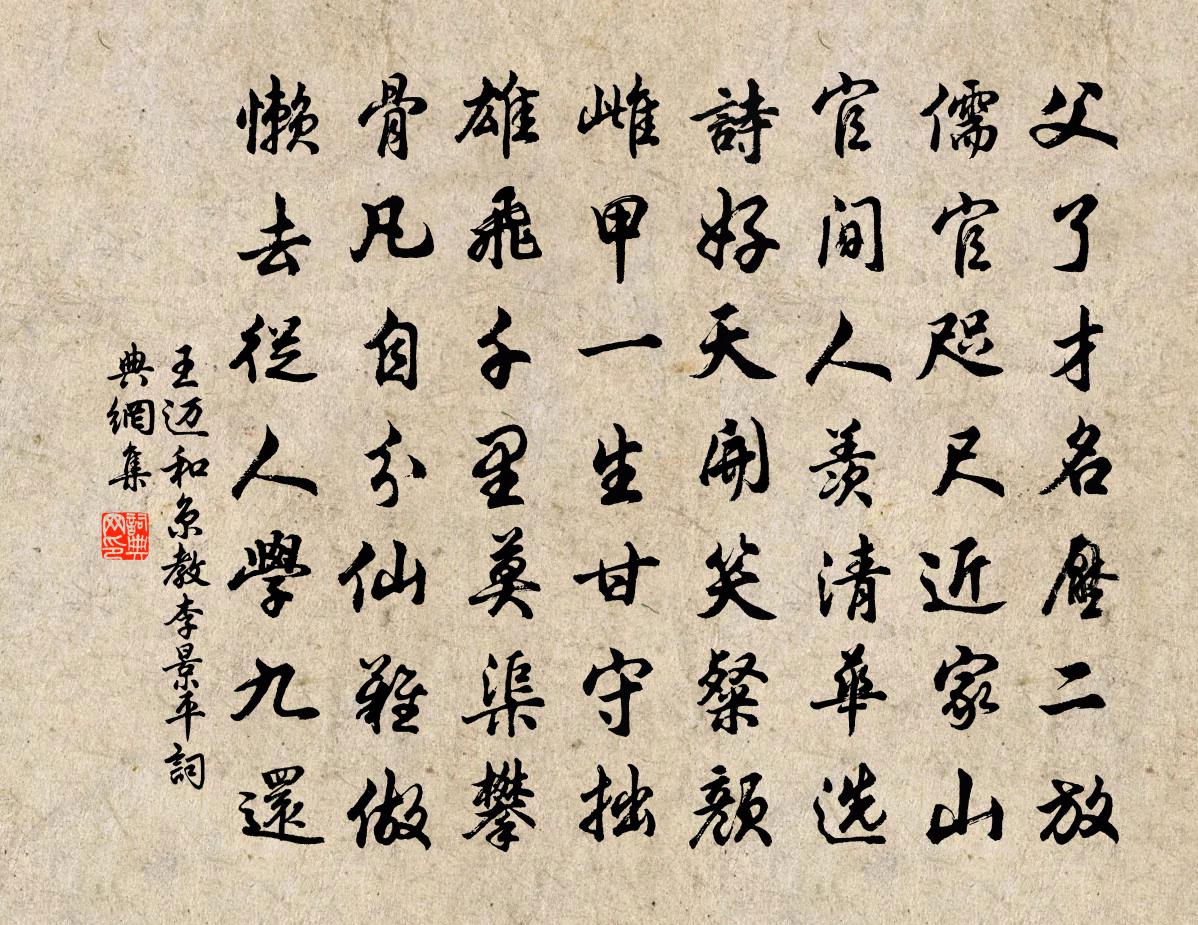 父了才名壓二放
儒官咫尺近家山
官間人羨清華选
詩好天開笑粲顏
雌甲一生甘守拙
雄飛千里莫渠攀
骨凡自分仙難做
懶去從人學九還
王迈和京教李景平詞
典網集
詞典
网印